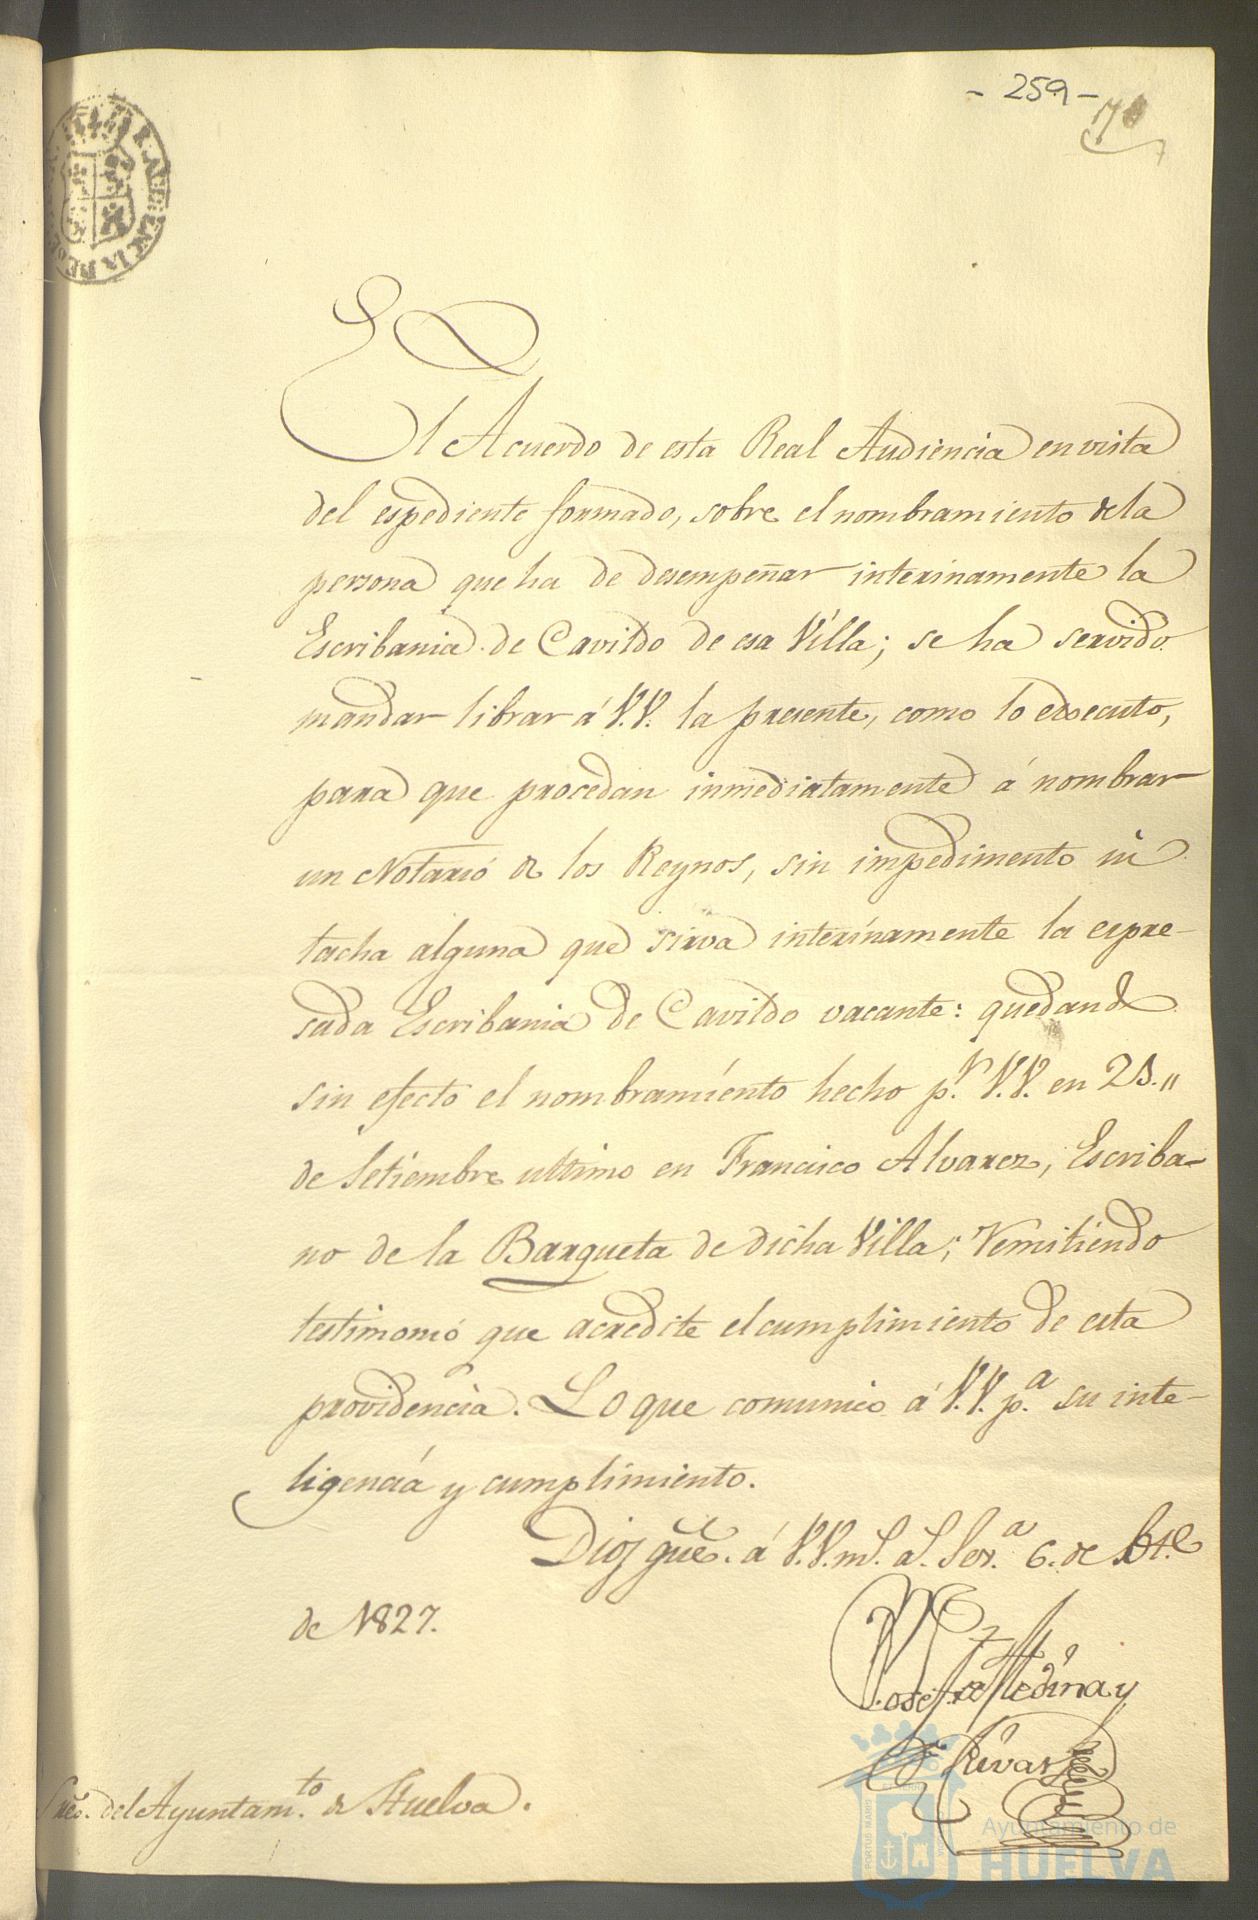 - 259 -
R. AUDIENCIA DE
El Acuerdo de esta Real Audiencia en vista
del espediente formado, sobre el nombramiento de la
persona que ha de desempeñar interinamente la
Escribania de Cavildo de esa Villa; se ha servido
mandar librar á V.V. la presente, como lo executo,
para que procedan inmediatamente á nombrar
un Notario de los Reynos, sin impedimento ni
tacha alguna que sirva interinamente la espre-
sada Escribania de Cavildo vacante: quedando
sin efecto el nombramiento hecho p.r V.V. en 25.,,
de Setiembre ultimo en Francisco Alvarez, Escriba-
no de la Barqueta de dicha Villa; remitiendo
testimonio que acredite el cumplimiento de esta
providencia. Lo que comunico á V.V. p.a su inte-
ligencia y cumplimiento.
Dios güe. á V.V. m.s a.s Sev.a 6. de
de 1827.
Medina y
Rivas
Sres. del Ayuntam.to de Huelva.
PORTUS MARIS
Ayuntamiento de
HUELVA